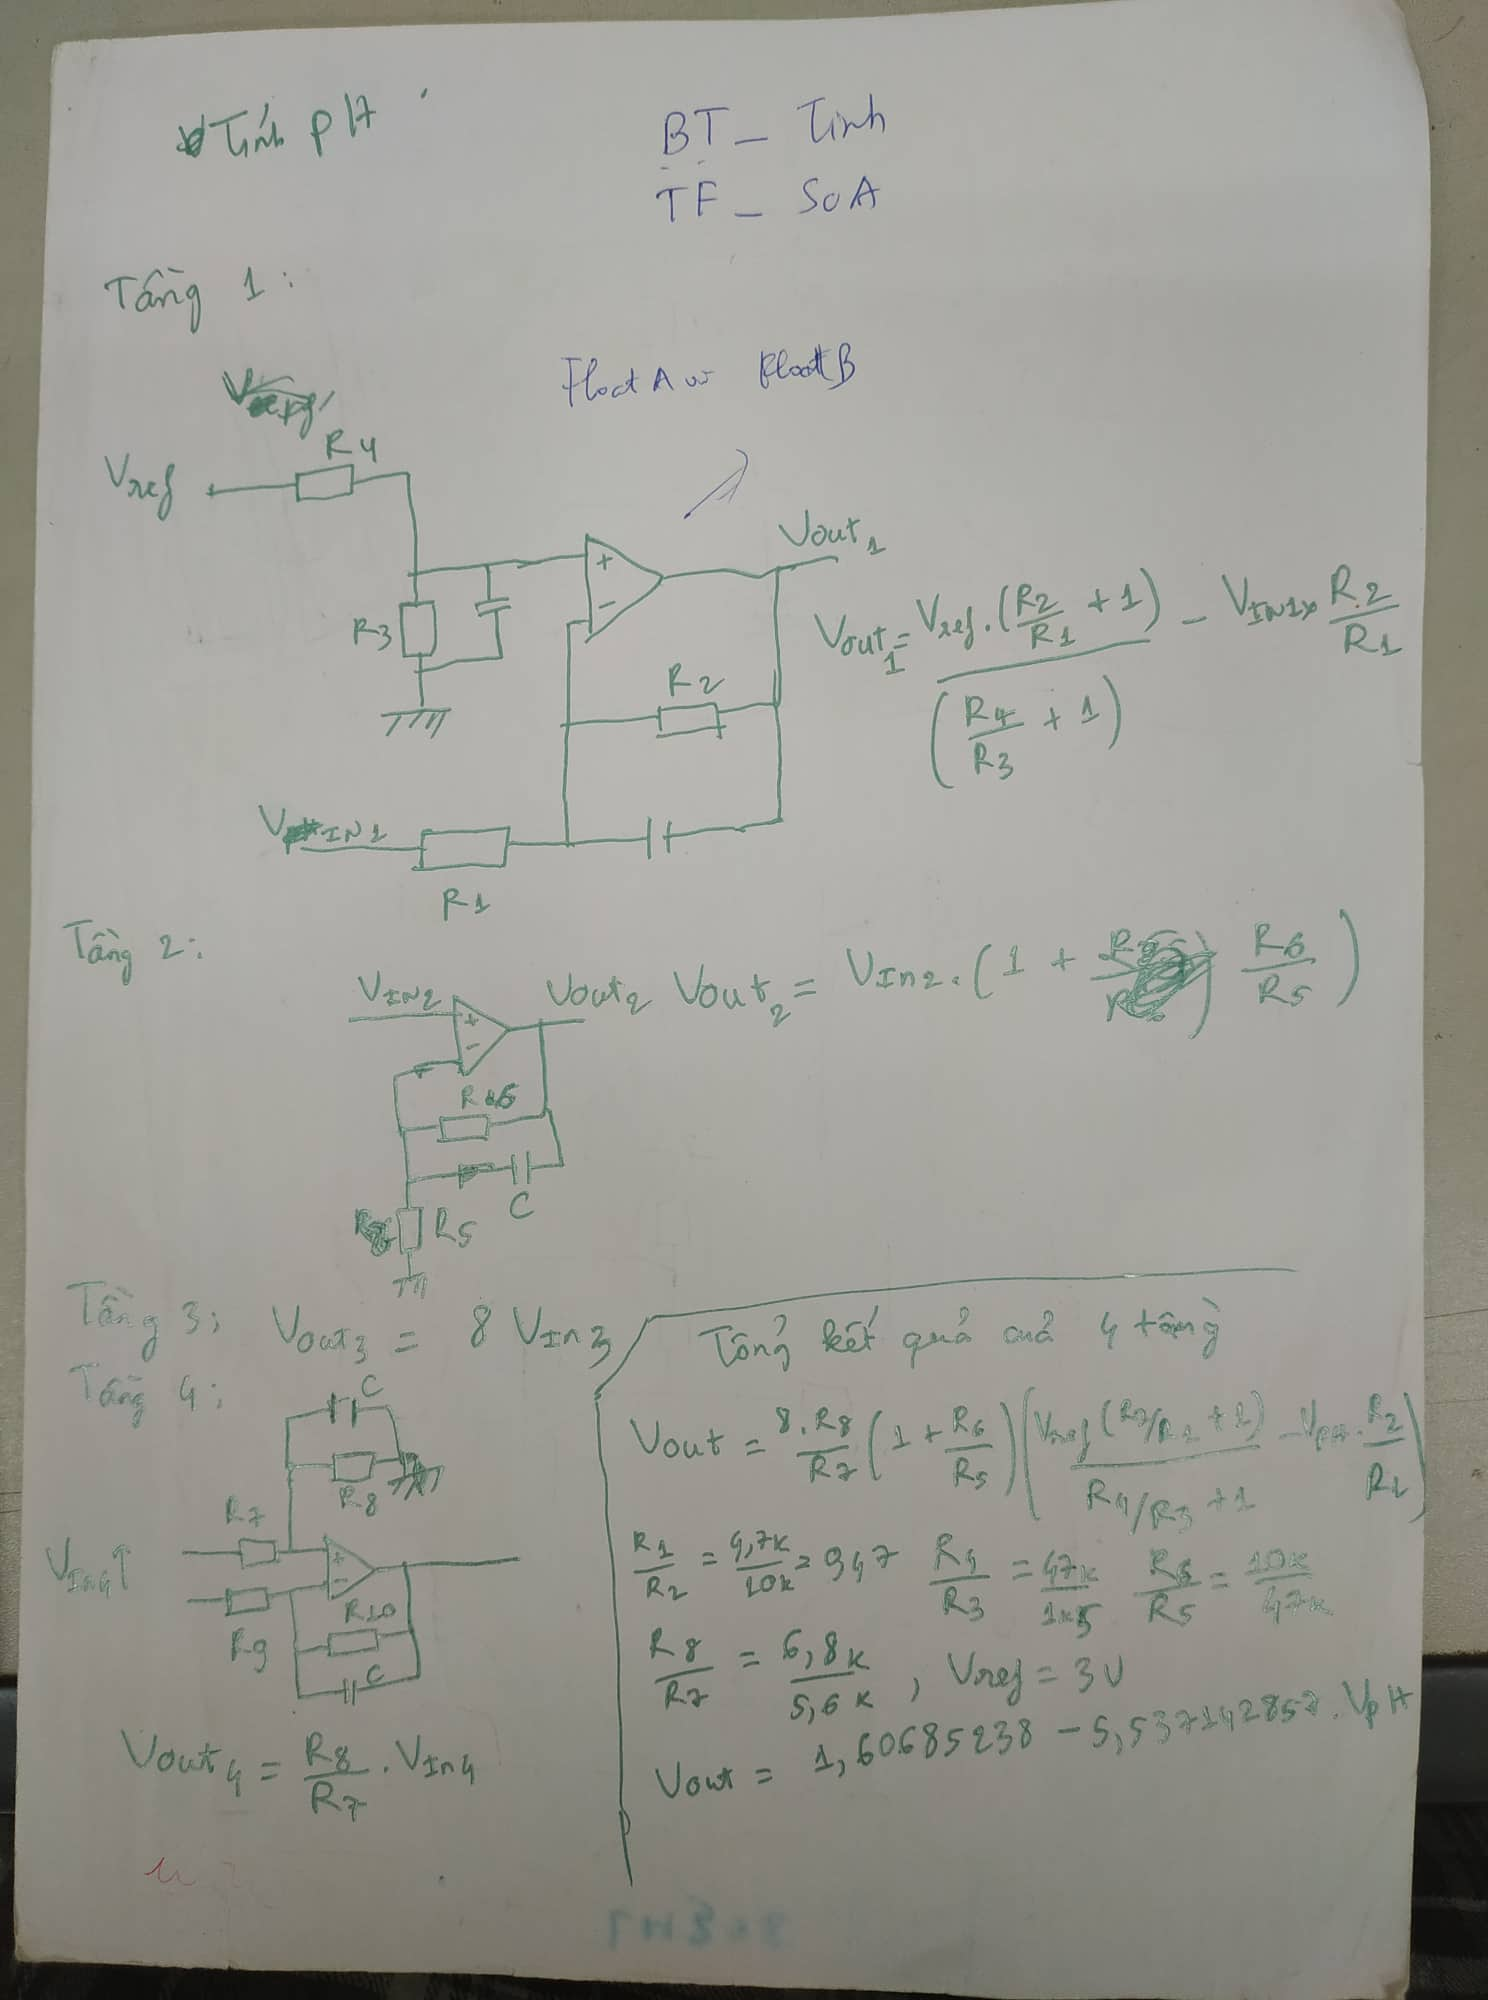 Tính pH
BT_ Tinh
TF_ SOA
Tầng 1:
FloatA FloatB
R4
Vref
Vout1
+
-
R3
R2
VIN1
R1
Vout1 = Vref.(R2/R1 + 1)/(R4/R3 + 1) - VIN1 x R2/R1
Tầng 2:
VIN2
Vout2
Vout2 = VIn2.(1 + R6/R5)
+
-
R6
C
R5
Tầng 3: Vout3 = 8 VIn3
Tầng 4:
C
R8
R7
VIn4
+
-
R10
R9
C
Vout4 = R8/R7 . VIn4
Tổng kết quả cuả 4 tầng
Vout = 8.R8/R7 (1 + R6/R5)(Vref(R2/R1 + 1)/(R4/R3 + 1) - VpH.R2/R1)
R1/R2 = 4,7K/10K = 947 R4/R3 = 47K/1K5 R6/R5 = 10K/47K
R8/R7 = 6,8K/5,6K, Vref = 3V
Vout = 1,60685238 - 5,537142857.VpH